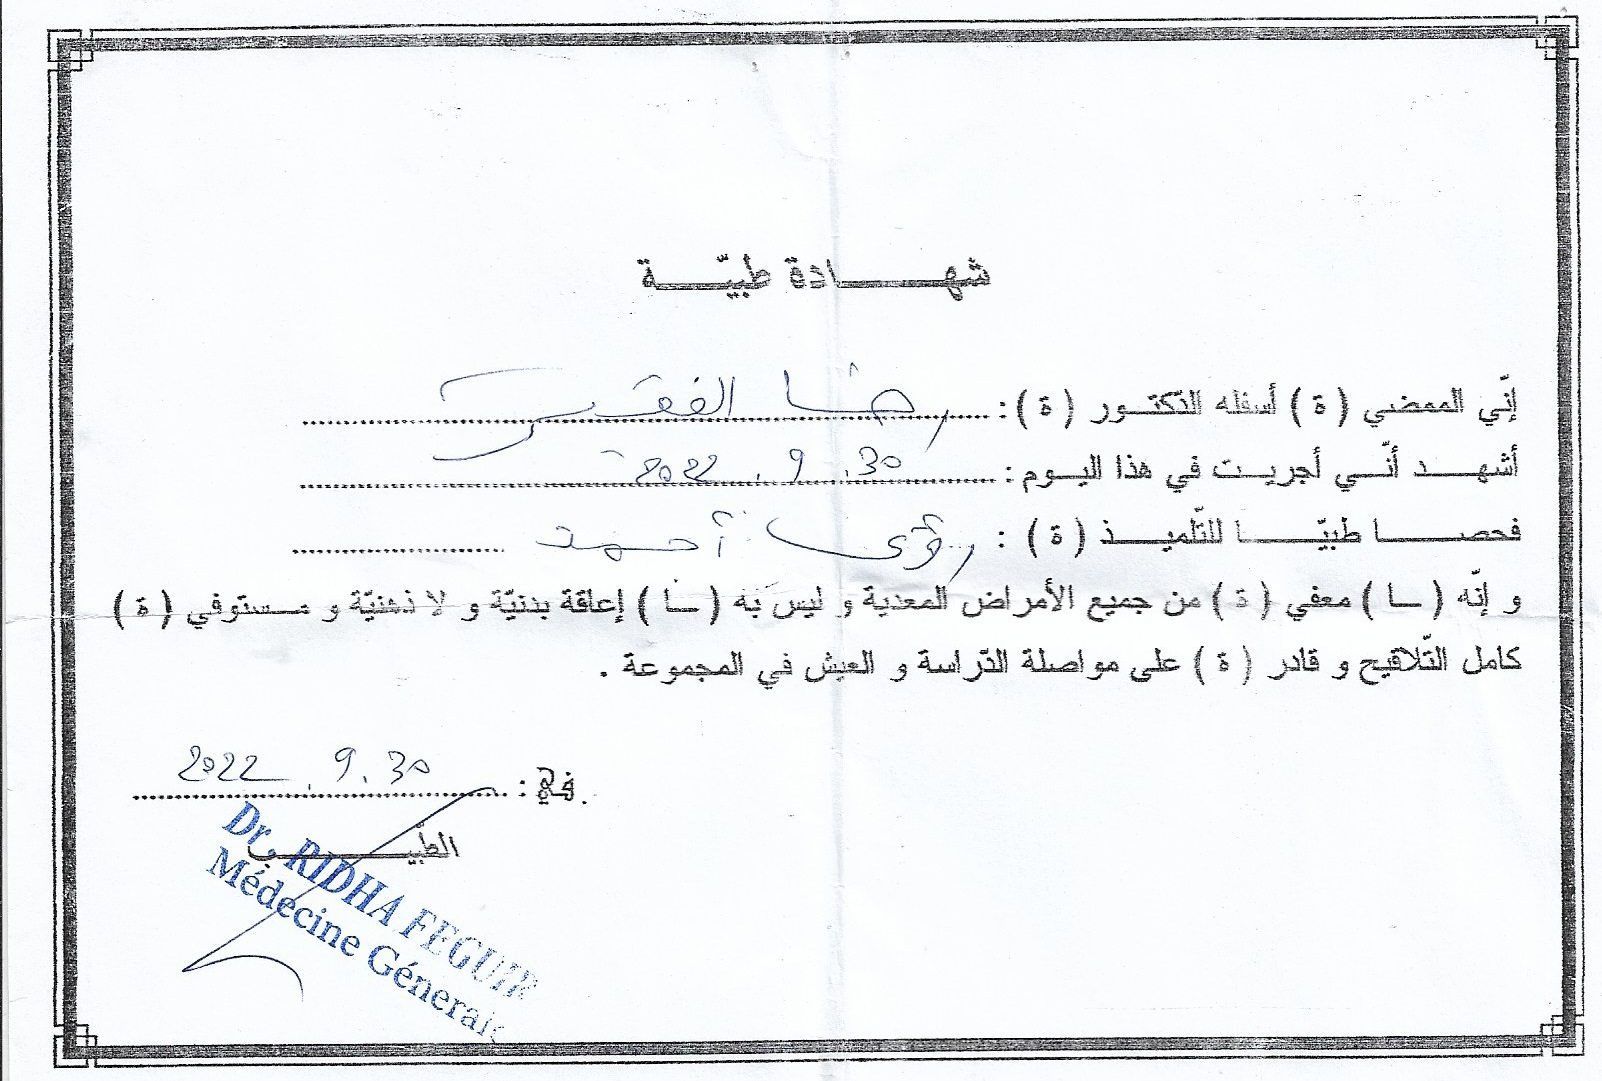 شهادة طبيّة
إنّي الممضي ( ة ) أسفله الدّكتور ( ة ) : رضا الفقير
أشهد أنّي أجريت في هذا اليوم : 30 . 9 . 2022
فحصا طبيّا للتّلميذ ( ة ) : رؤى أحمد
و إنّه ( ـا ) معفي ( ة ) من جميع الأمراض المعدية و ليس به ( ـا ) إعاقة بدنيّة و لا ذهنيّة و مستوفي ( ة )
كامل التّلاقيح و قادر ( ة ) على مواصلة الدّراسة و العيش في المجموعة .
في : 30 . 9 . 2022
الطّبيب
Dr. RIDHA FEGUIR
Médecine Génerale